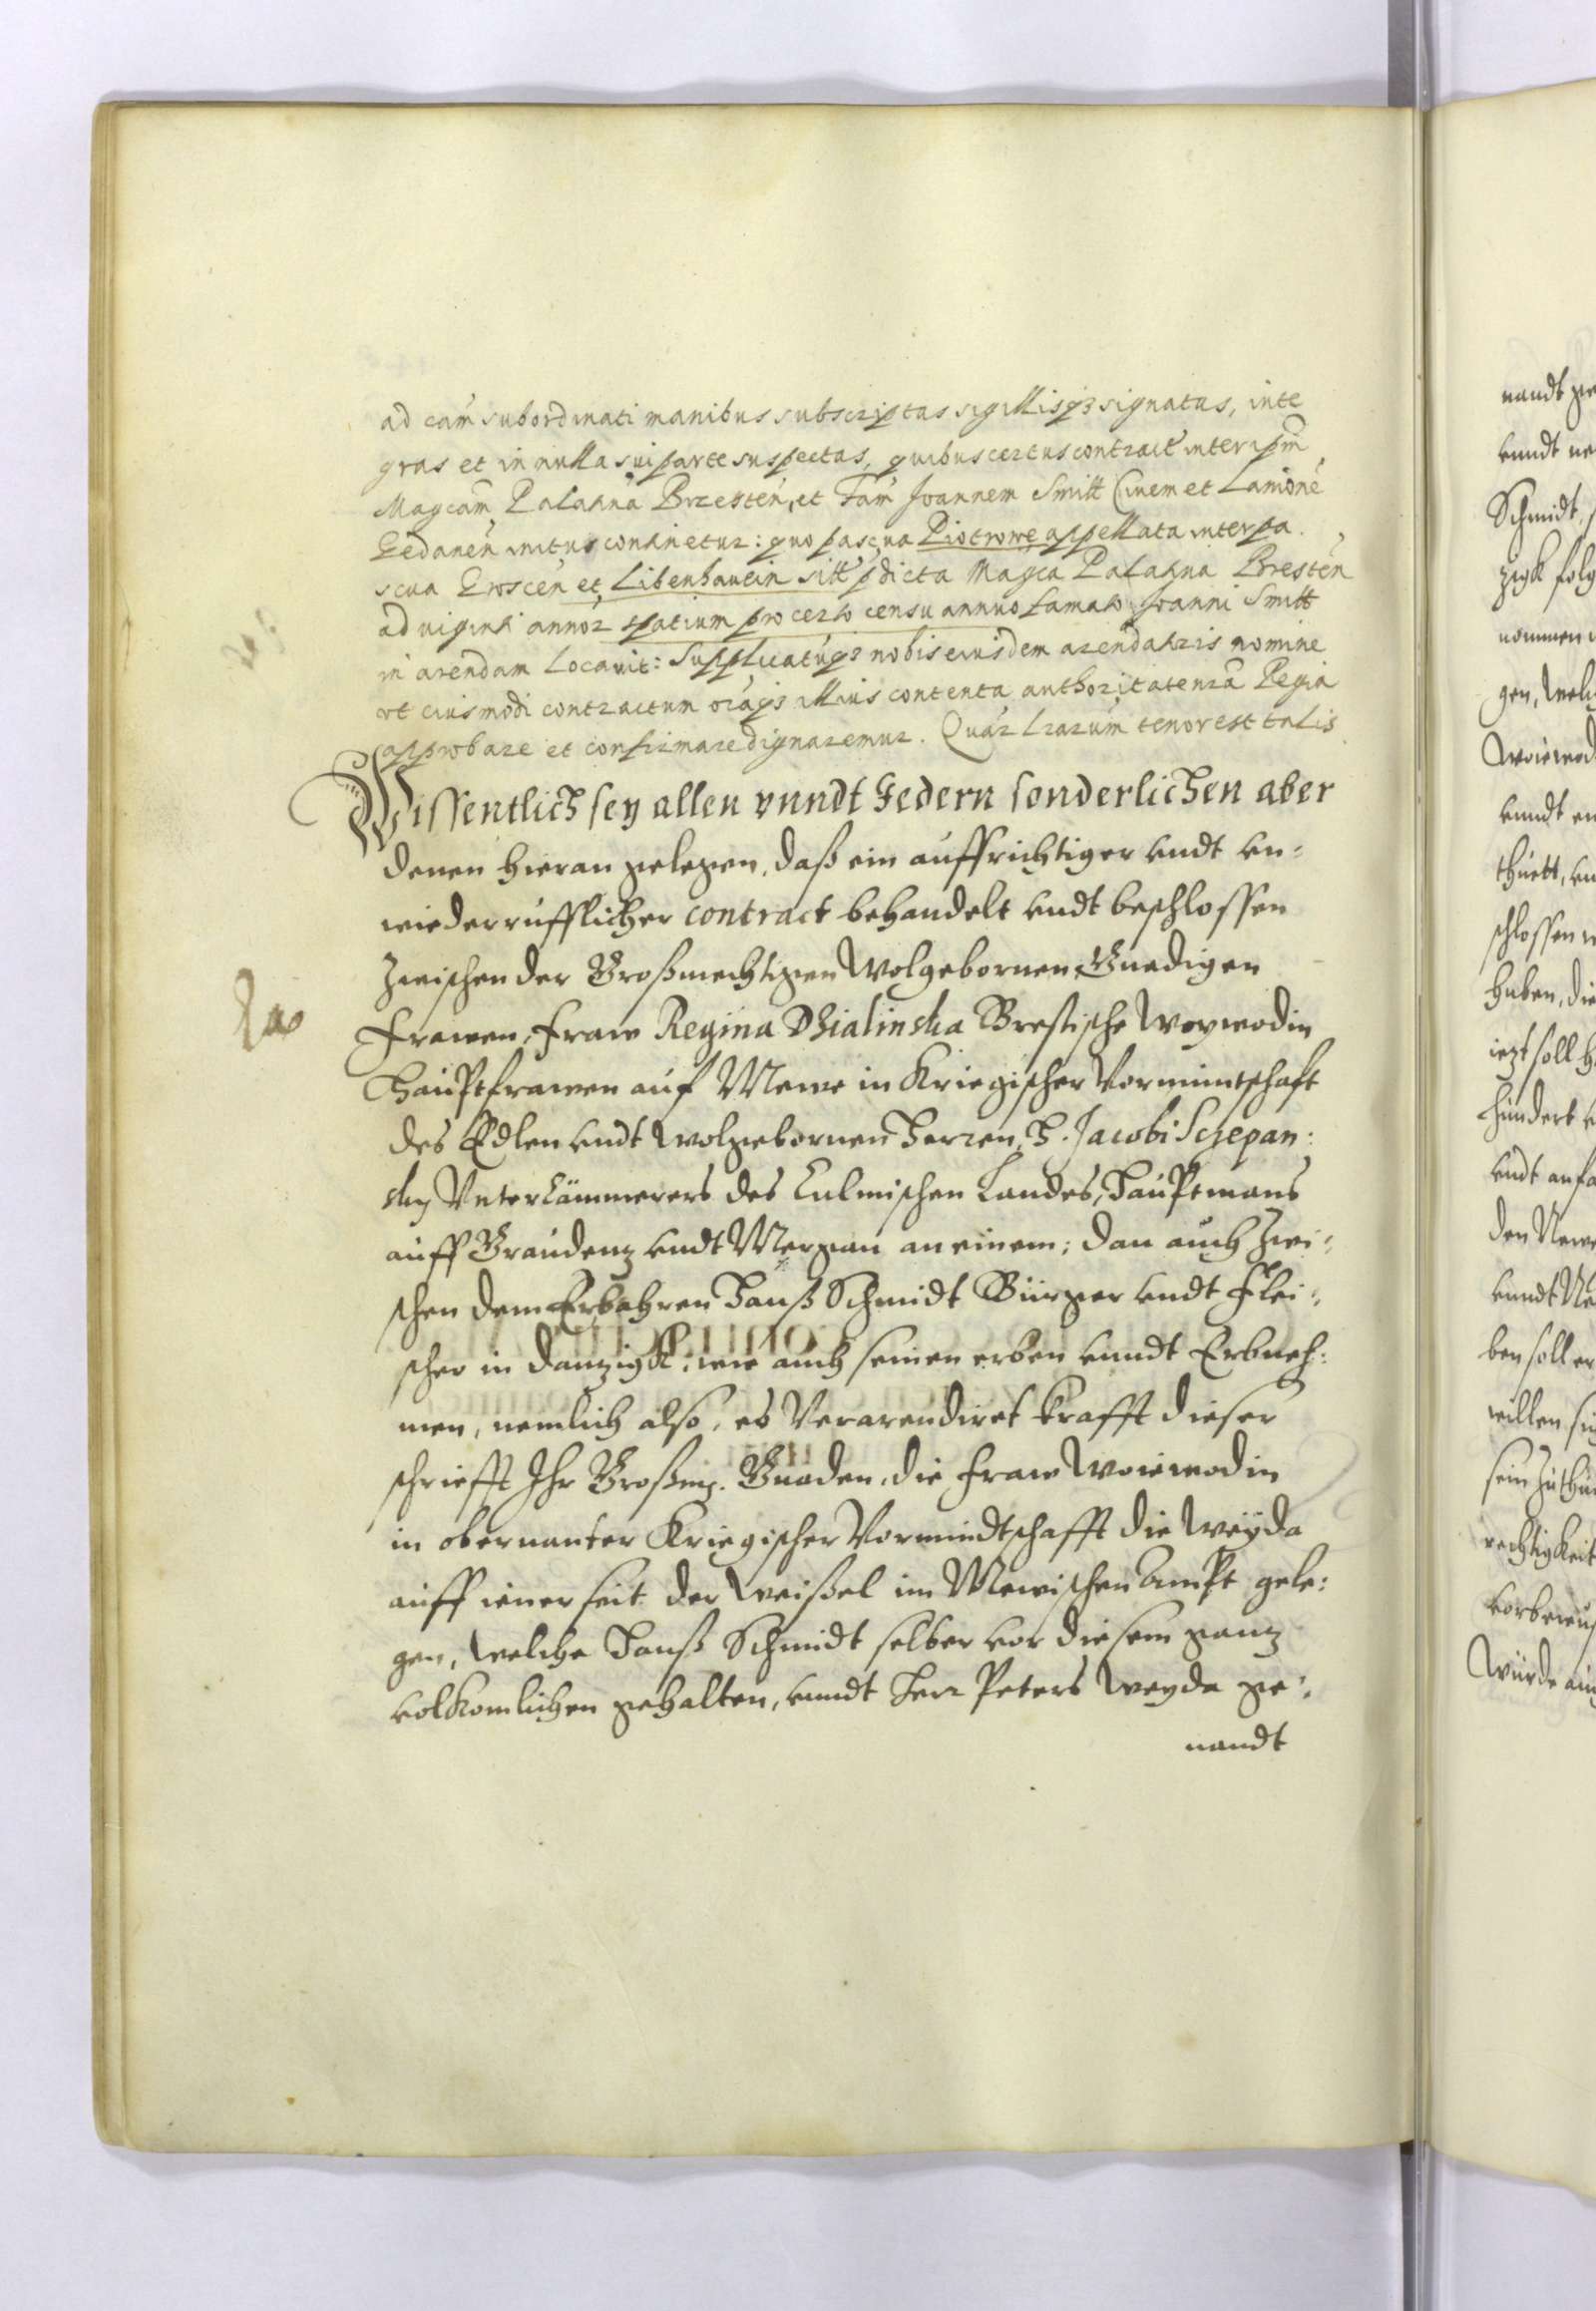 ad eam subordinati manibus subscriptas sigillisqз signatas, inte
gras et in nulla sui parte suspectas, quibus certus contract⁹ inter ipm̃
Magcam̃ Palatina Brzesteń, et Fam̃ Joannem Smitt Civem et Lanionẽ
Gedaneń initus continetur: quo pascua Piotrowe appellata inter pa
scua Groscen et Libenhauein sitt p̃dicta Magca Palatina Bresteń
ad viginti annoꝝ spatium pro certo censu annuo famato Joanni Smitt
in arendam Locavit: Supplicatũqз nobis eiusdem arendatris nomine
vt eiusmodi contractum oĩaqз illius contenta authoritate nrã Regia
approbare et confirmare dignaremur. Quar̃ Lrarum tenor est talis
Wissentlich sey allen vnndt Jedern sonderlichen aber
denen hieran gelegen, daß ein auffrichtiger vndt vn-
wiederrufflicher contract behandelt vndt beschlossen
zwischen der Großmechtigen Wolgebornen Gnedigen
Frawen, Fraw Regina Dzialinska Brestische Woywodin
Hauptfrawen auf Mewe in Kriegischer Vormuntschaft
des Edlen vndt Wolgebornen Herren, H. Jacobi Sczepan:
sky Vnterkämmerers des Culmischen Landes, Hauptmans
auff Graudenz vndt Mergau an einem; dan auch zwi-
schen dem Erbahren Hanß Schmidt Bürger vndt Flei-
scher in Danzigk; wie auch seinen erben vnndt Erbneh:
men, nemlich also, es Verarendiret krafft dieser
schriefft Ihr Großmg. Gnaden, die Fraw Woiewodin
in obernanter Kriegischer Vormundtschafft die Weyda
auff iener seit der Weißel im Mewischen Ampt gele:
gen, welche Hanß Schmidt selber vor diesem gantz
volkomlichen gehalten, vnndt Herr Peters Weyda ge:
nandt